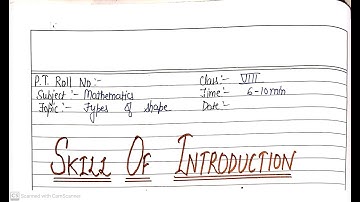 P.T. Roll No:- Class:- VIII
Subject:- Mathematics Time:- 6-10min
Topic:- Types of shape Date:-
SKILL OF INTRODUCTION
CS Scanned with CamScanner